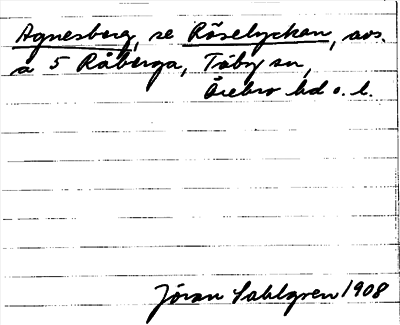 Agnesberg, se Röselyckan, avs.
a 5 Råberga, Täby sn,
Örebro hd o. l.
Jöran Sahlgren 1908